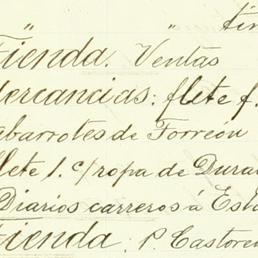 " " tin
Tienda. Ventas
Mercancias: flete f.
abarrotes de Torreón
flete 1. c/ropa de Dura
Diarios carreros á Est
Tienda: P. Castore